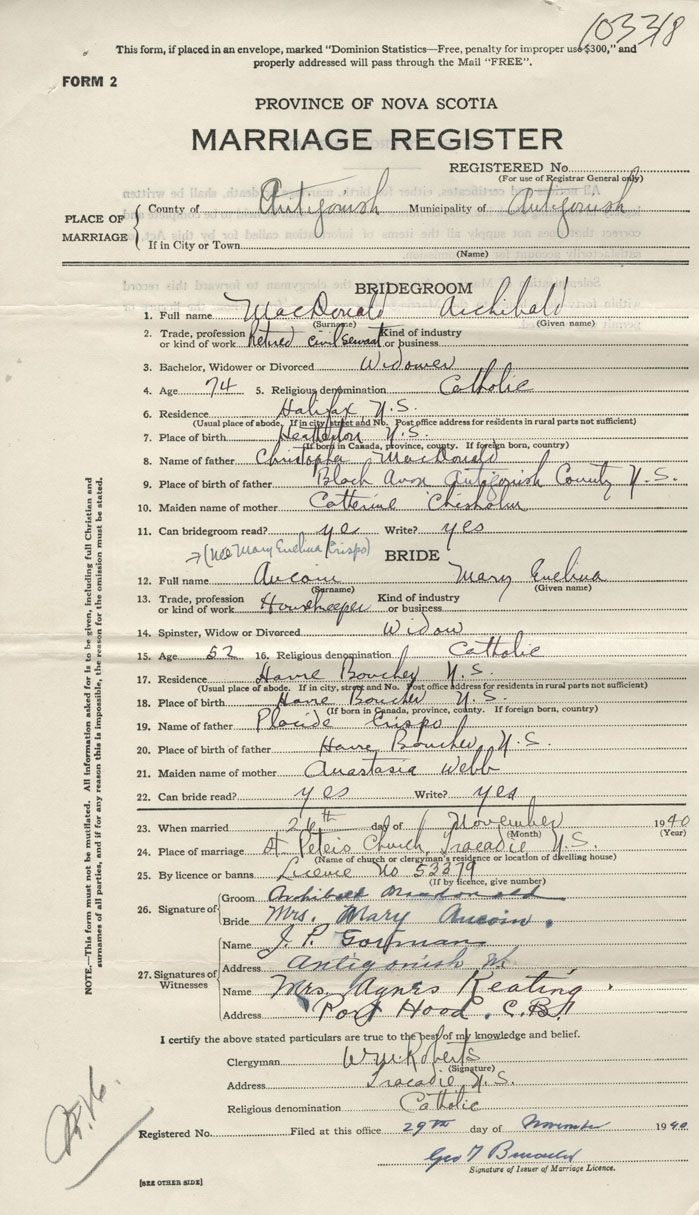 10338
This form, if placed in an envelope, marked "Dominion Statistics—Free, penalty for improper use $300," and
properly addressed will pass through the Mail "FREE".
FORM 2
PROVINCE OF NOVA SCOTIA
MARRIAGE REGISTER
REGISTERED No.
(For use of Registrar General only)
PLACE OF MARRIAGE
County of Antigonish Municipality of Antigonish
If in City or Town
(Name)
BRIDEGROOM
1. Full name MacDonald Archibald
(Surname) (Given name)
2. Trade, profession or kind of work Retired Civil Servant Kind of industry or business
3. Bachelor, Widower or Divorced Widower
4. Age 74 5. Religious denomination Catholic
6. Residence Halifax N.S.
(Usual place of abode. If in city, street and No. Post office address for residents in rural parts not sufficient)
7. Place of birth Heatherton N.S.
(If born in Canada, province, county. If foreign born, country)
8. Name of father Christopher MacDonald
9. Place of birth of father Black Avon Antigonish County N.S.
10. Maiden name of mother Catherine Chisholm
11. Can bridegroom read? yes Write? yes
(nee Mary Evelina Crispo)
BRIDE
12. Full name Aucoin Mary Evelina
(Surname) (Given name)
13. Trade, profession or kind of work Housekeeper Kind of industry or business
14. Spinster, Widow or Divorced Widow
15. Age 52 16. Religious denomination Catholic
17. Residence Havre Boucher N.S.
(Usual place of abode. If in city, street and No. Post office address for residents in rural parts not sufficient)
18. Place of birth Havre Boucher N.S.
(If born in Canada, province, county. If foreign born, country)
19. Name of father Placide Crispo
20. Place of birth of father Havre Boucher N.S.
21. Maiden name of mother Anastasia Webb
22. Can bride read? yes Write? yes
23. When married 26th day of November 1940
(Month) (Year)
24. Place of marriage St Peter's Church, Tracadie N.S.
(Name of church or clergyman's residence or location of dwelling house)
25. By licence or banns Licence No 53379
(If by licence, give number)
26. Signature of
Groom Archibald Macdonald
Bride Mrs. Mary Aucoin.
27. Signatures of Witnesses
Name J. P. Gorman
Address Antigonish
Name Mrs. Agnes Keating
Address Port Hood, C.B.
I certify the above stated particulars are true to the best of my knowledge and belief.
Clergyman Wm. Roberts
(Signature)
Address Tracadie, N.S.
Religious denomination Catholic
Registered No. Filed at this office 29th day of November 1940
Geo
Signature of Issuer of Marriage Licence.
[SEE OTHER SIDE]
NOTE.—This form must not be mutilated. All information asked for is to be given, including full Christian and
surnames of all parties, and if for any reason this is impossible, the reason for the omission must be stated.